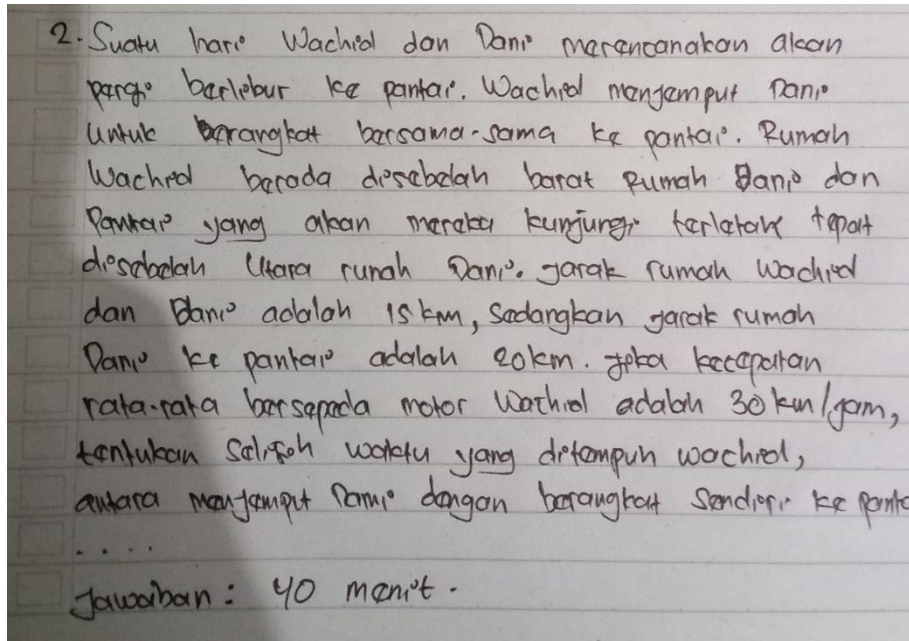 2. Suatu hari Wachid dan Dani merencanakan akan
pergi berlibur ke pantai. Wachid menjemput Dani
untuk berangkat bersama-sama ke pantai. Rumah
Wachid berada disebelah barat Rumah Dani dan
Pantai yang akan mereka kunjungi terletak tepat
disebelah Utara rumah Dani. Jarak rumah Wachid
dan Dani adalah 15 km, Sedangkan jarak rumah
Dani ke pantai adalah 20km. Jika kecepatan
rata-rata bersepeda motor Wachid adalah 30 km/jam,
tentukan Selisih waktu yang ditempuh wachid,
antara menjemput Dani dengan berangkat Sendiri ke panta
....
Jawaban : 40 menit.